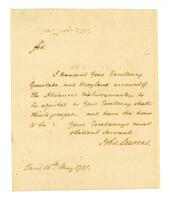 Sir
I transmit Your Excellency
and Maryland account of
the Alliances disbursements to
be
as Your Excellency shall
think proper, and have the honor
to be Your Excellencys most
obedient servant
John Laurens.
Paris 16th May 1781.